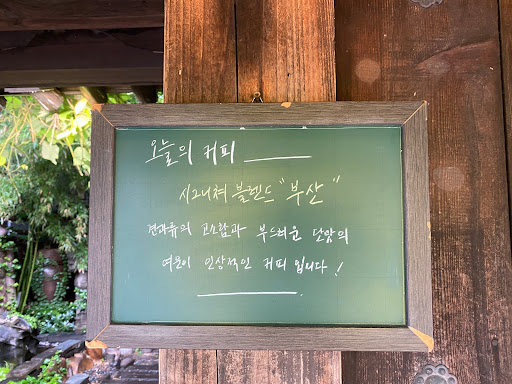 오늘의 커피
시그니쳐 블렌드 "부산"
견과류의 고소함과 부드러운 단맛의
여운이 인상적인 커피 입니다!